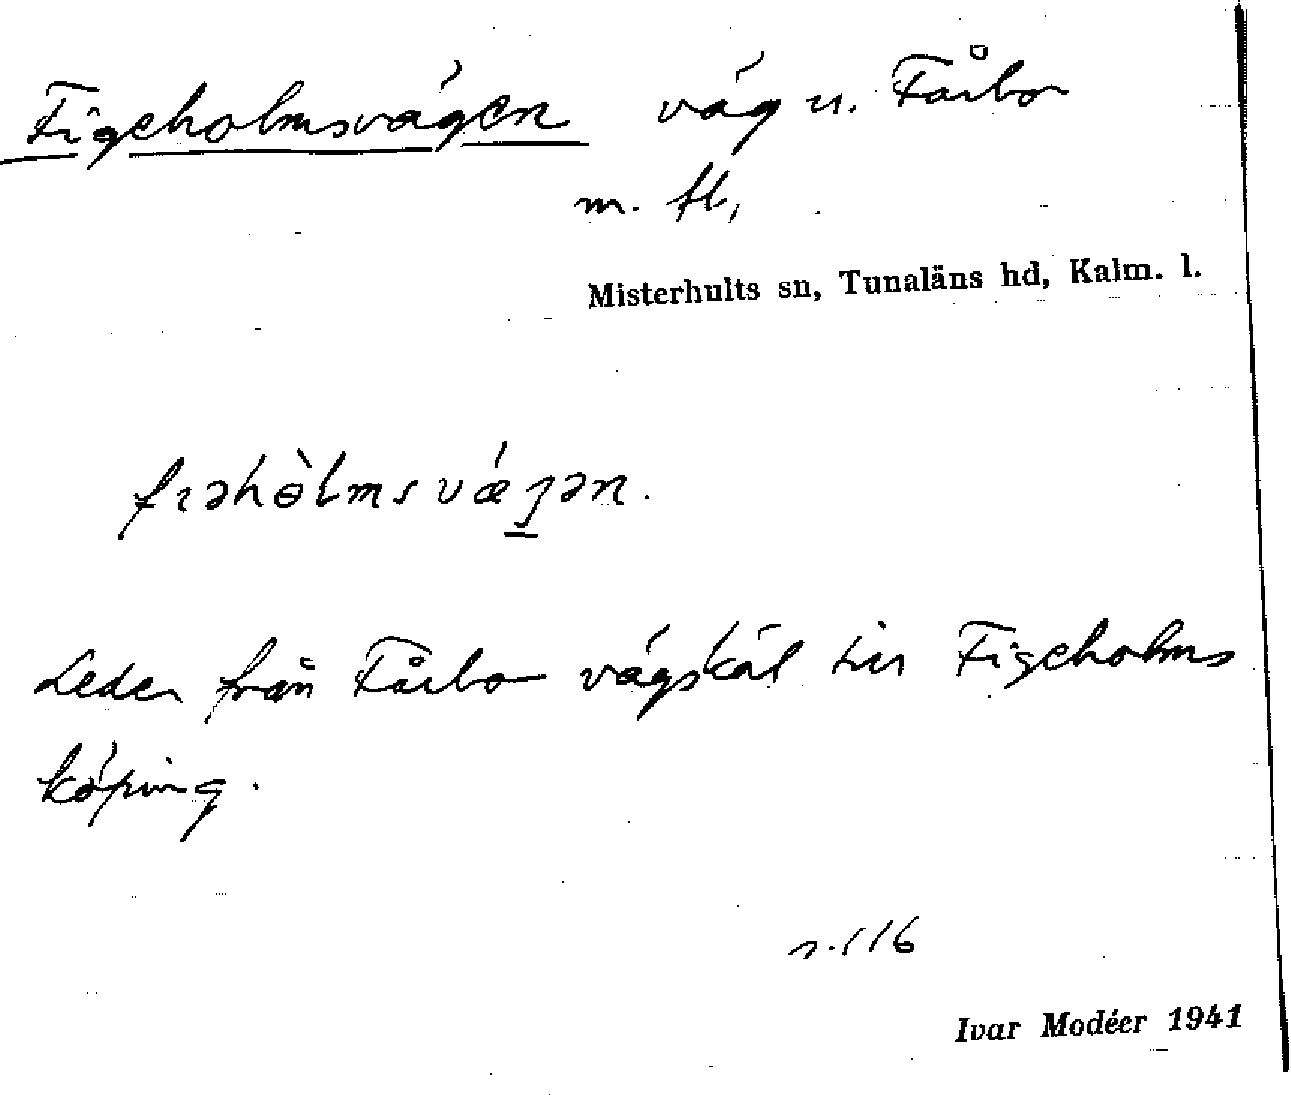 Figeholmsvägen väg u. Fårbo
m. fl,
Misterhults sn, Tunaläns hd, Kalm. l.
fıəhòlmsvǽgən.
Leder från Fårbo vägskäl till Figeholms
köping.
s. 116
Ivar Modéer 1941